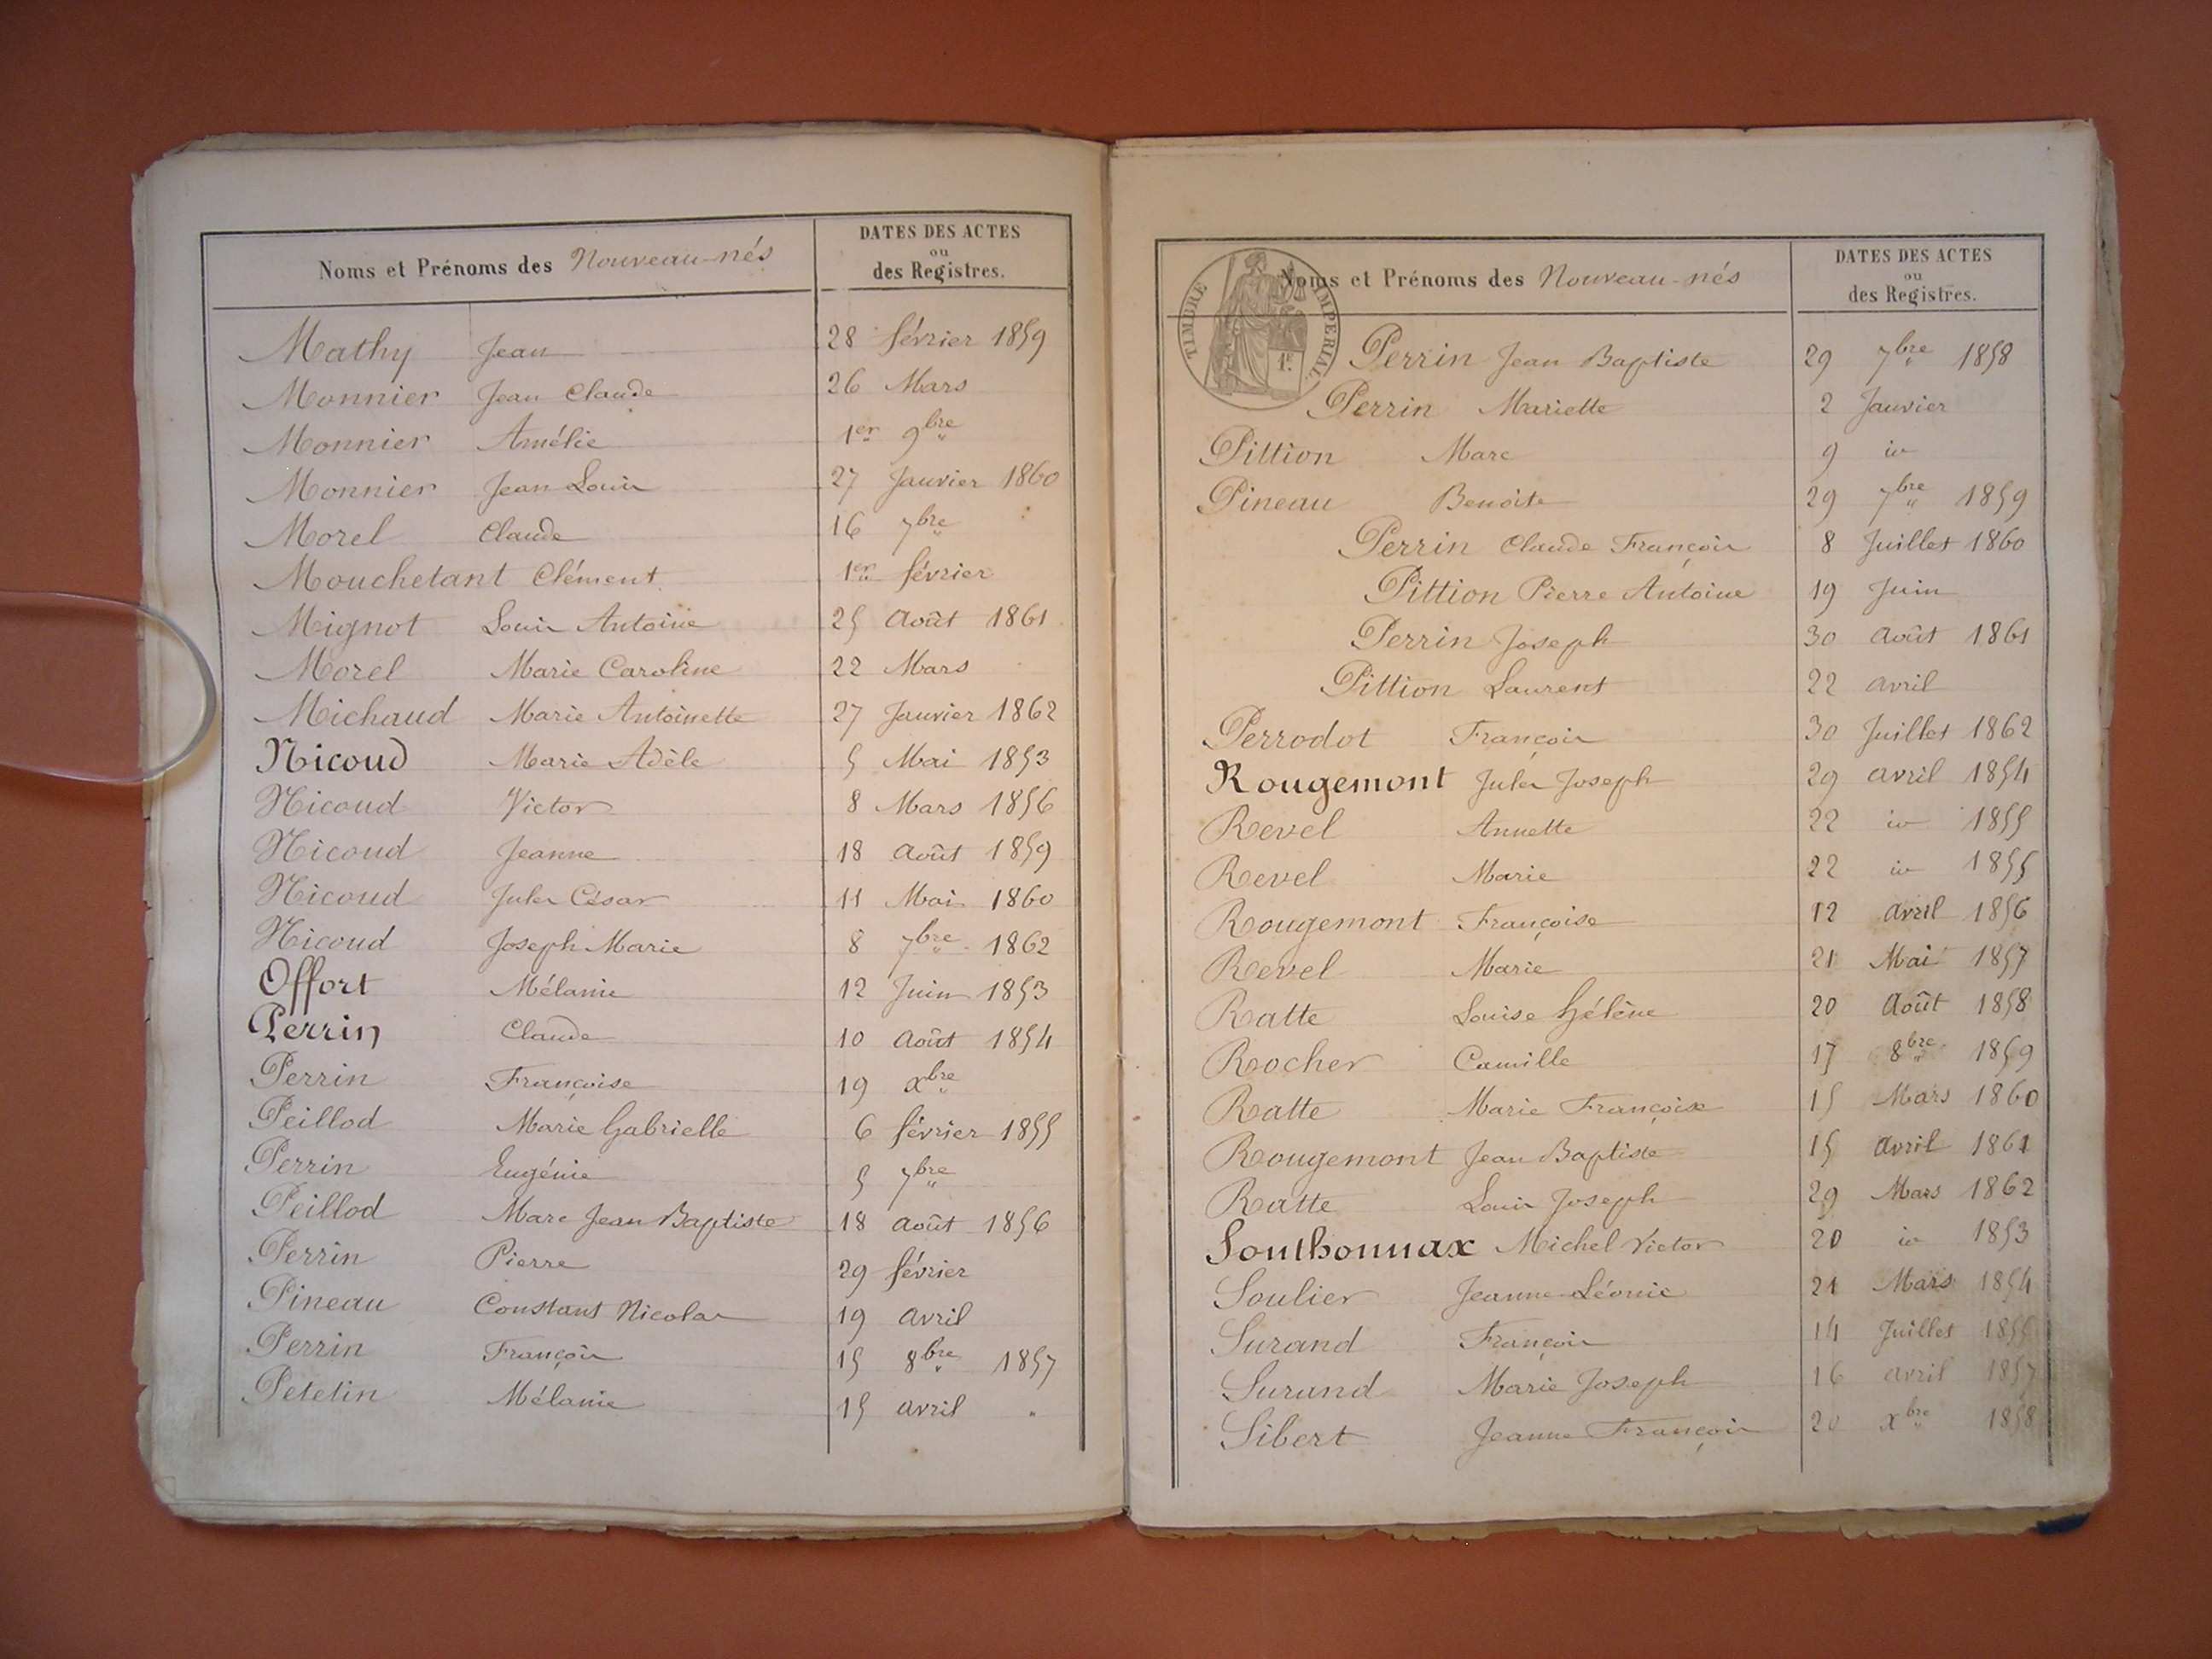 Noms et Prénoms des Nouveau-nés
DATES DES ACTES
ou
des Registres.
Mathy Jean 28 février 1859
Monnier Jean Claude 26 Mars
Monnier Amélie 1er 9bre
Monnier Jean Louis 27 Janvier 1860
Morel Claude 16 7bre
Mouchetant Clément 1er février
Mignot Louis Antoine 25 Août 1861
Morel Marie Caroline 22 Mars
Michaud Marie Antoinette 27 Janvier 1862
Nicoud Marie Adèle 5 Mai 1853
Nicoud Victor 8 Mars 1856
Nicoud Jeanne 18 Août 1859
Nicoud Jules César 11 Mai 1860
Nicoud Joseph Marie 8 7bre 1862
Offort Mélanie 12 Juin 1853
Perrin Claude 10 Août 1854
Perrin Françoise 19 xbre
Peillod Marie Gabrielle 6 février 1855
Perrin Eugénie 5 7bre
Peillod Marc Jean Baptiste 18 août 1856
Perrin Pierre 29 février
Pineau Constant Nicolas 19 avril
Perrin François 15 8bre 1857
Petetin Mélanie 15 avril "
TIMBRE IMPERIAL
1F
Noms et Prénoms des Nouveau-nés
DATES DES ACTES
ou
des Registres.
Perrin Jean Baptiste 29 7bre 1858
Perrin Mariette 2 Janvier
Pittion Marc 9 id
Pineau Benoite 29 7bre 1859
Perrin Claude François 8 Juillet 1860
Pittion Pierre Antoine 19 Juin
Perrin Joseph 30 Août 1861
Pittion Laurent 22 avril
Perrodot François 30 Juillet 1862
Rougemont Jules Joseph 29 avril 1854
Revel Annette 22 id 1855
Revel Marie 22 id 1855
Rougemont Françoise 12 avril 1856
Revel Marie 21 Mai 1857
Ratte Louise Hélène 20 Août 1858
Rocher Camille 17 8bre 1859
Ratte Marie Françoise 15 Mars 1860
Rougemont Jean Baptiste 15 avril 1861
Ratte Louis Joseph 29 Mars 1862
Southonnax Michel Victor 20 id 1853
Soulier Jeanne Léonie 21 Mars 1854
Surand François 14 Juillet 1855
Surand Marie Joseph 16 avril 1857
Sibert Jeanne François 20 xbre 1858